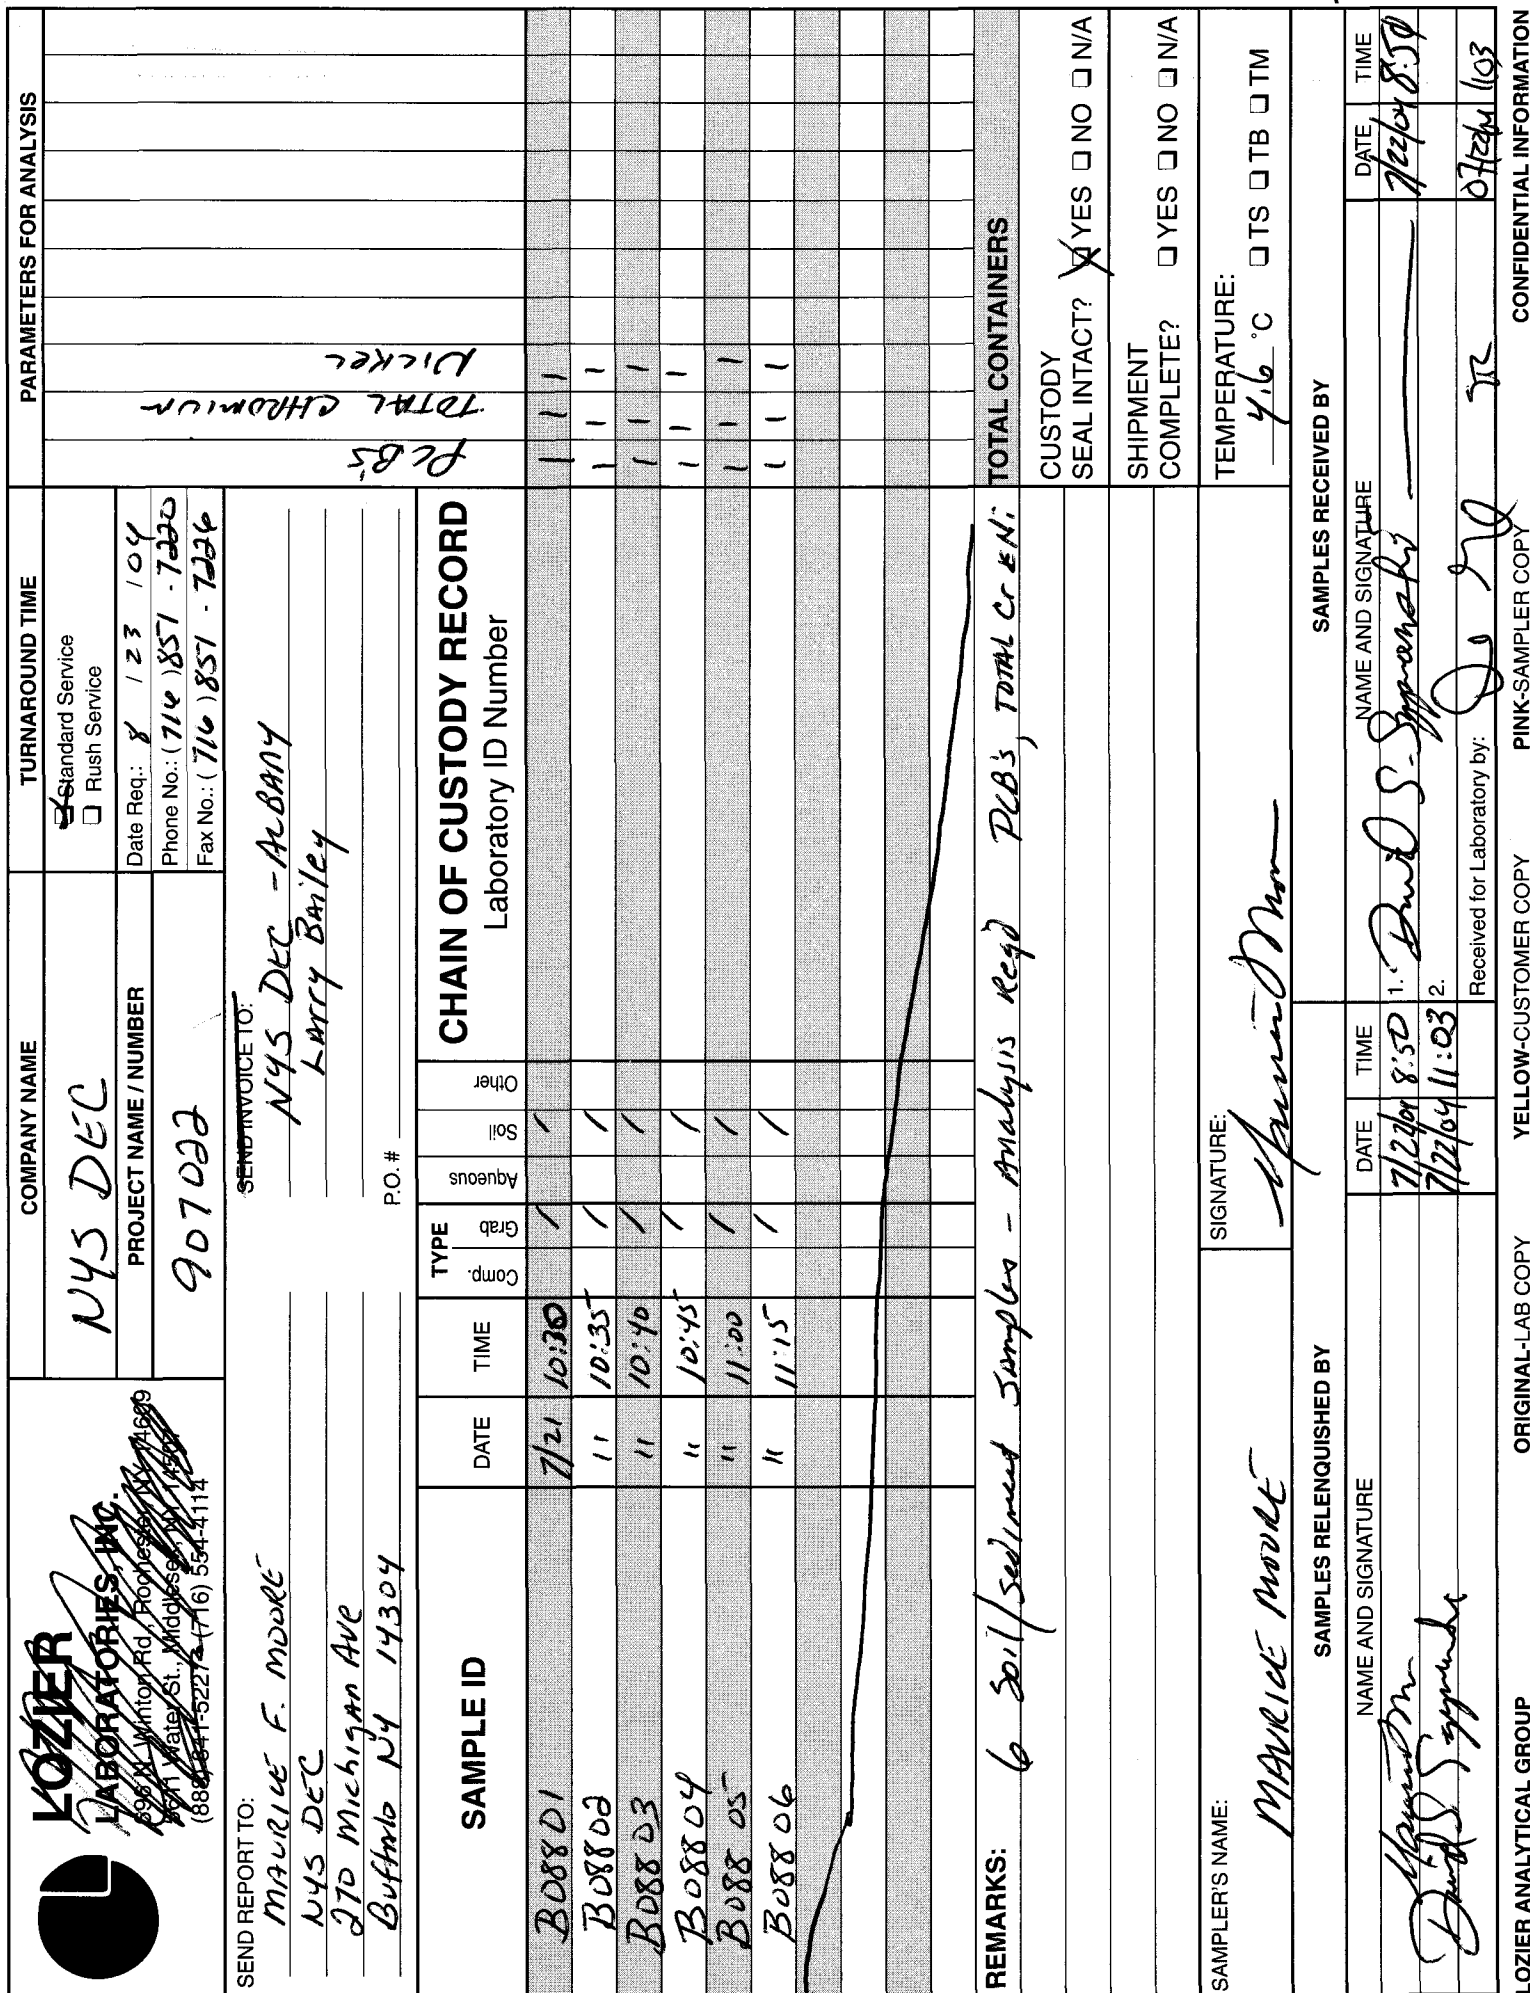 LOZIER
LABORATORIES, INC.
(716) 554-4114
COMPANY NAME
NYS DEC
PROJECT NAME / NUMBER
907022
TURNAROUND TIME
Standard Service
Rush Service
Date Req.: 8 / 23 / 04
Phone No.: (716) 851 - 7220
Fax No.: (716) 851 - 7226
PARAMETERS FOR ANALYSIS
PCB's
TOTAL CHROMIUM
NICKEL
SEND REPORT TO:
MAURICE F. MOORE
NYS DEC
270 Michigan Ave
Buffalo NY 14304
SEND INVOICE TO:
NYS DEC - ALBANY
Larry Bailey
P.O. #
CHAIN OF CUSTODY RECORD
Laboratory ID Number
SAMPLE ID DATE TIME TYPE Comp. Grab Aqueous Soil Other
B08801 7/21 10:30 / / 1 1 1
B08802 " 10:35 / / 1 1 1
B08803 " 10:40 / / 1 1 1
B08804 " 10:45 / / 1 1 1
B08805 " 11:00 / / 1 1 1
B08806 " 11:15 / / 1 1 1
REMARKS: 6 Soil/Sediment Samples - Analysis Reqd PCB's, TOTAL Cr & Ni
TOTAL CONTAINERS
CUSTODY
SEAL INTACT? YES NO N/A
SHIPMENT
COMPLETE? YES NO N/A
TEMPERATURE:
4.6 °C TS TB TM
SAMPLER'S NAME:
MAURICE MOORE
SIGNATURE:
SAMPLES RELENQUISHED BY
SAMPLES RECEIVED BY
NAME AND SIGNATURE DATE TIME
NAME AND SIGNATURE DATE TIME
7/22/04 8:50
1. David S. 7/22/04 8:50
David S 7/22/04 11:03
2.
Received for Laboratory by: 07/22/04 1103
LOZIER ANALYTICAL GROUP ORIGINAL-LAB COPY YELLOW-CUSTOMER COPY PINK-SAMPLER COPY CONFIDENTIAL INFORMATION